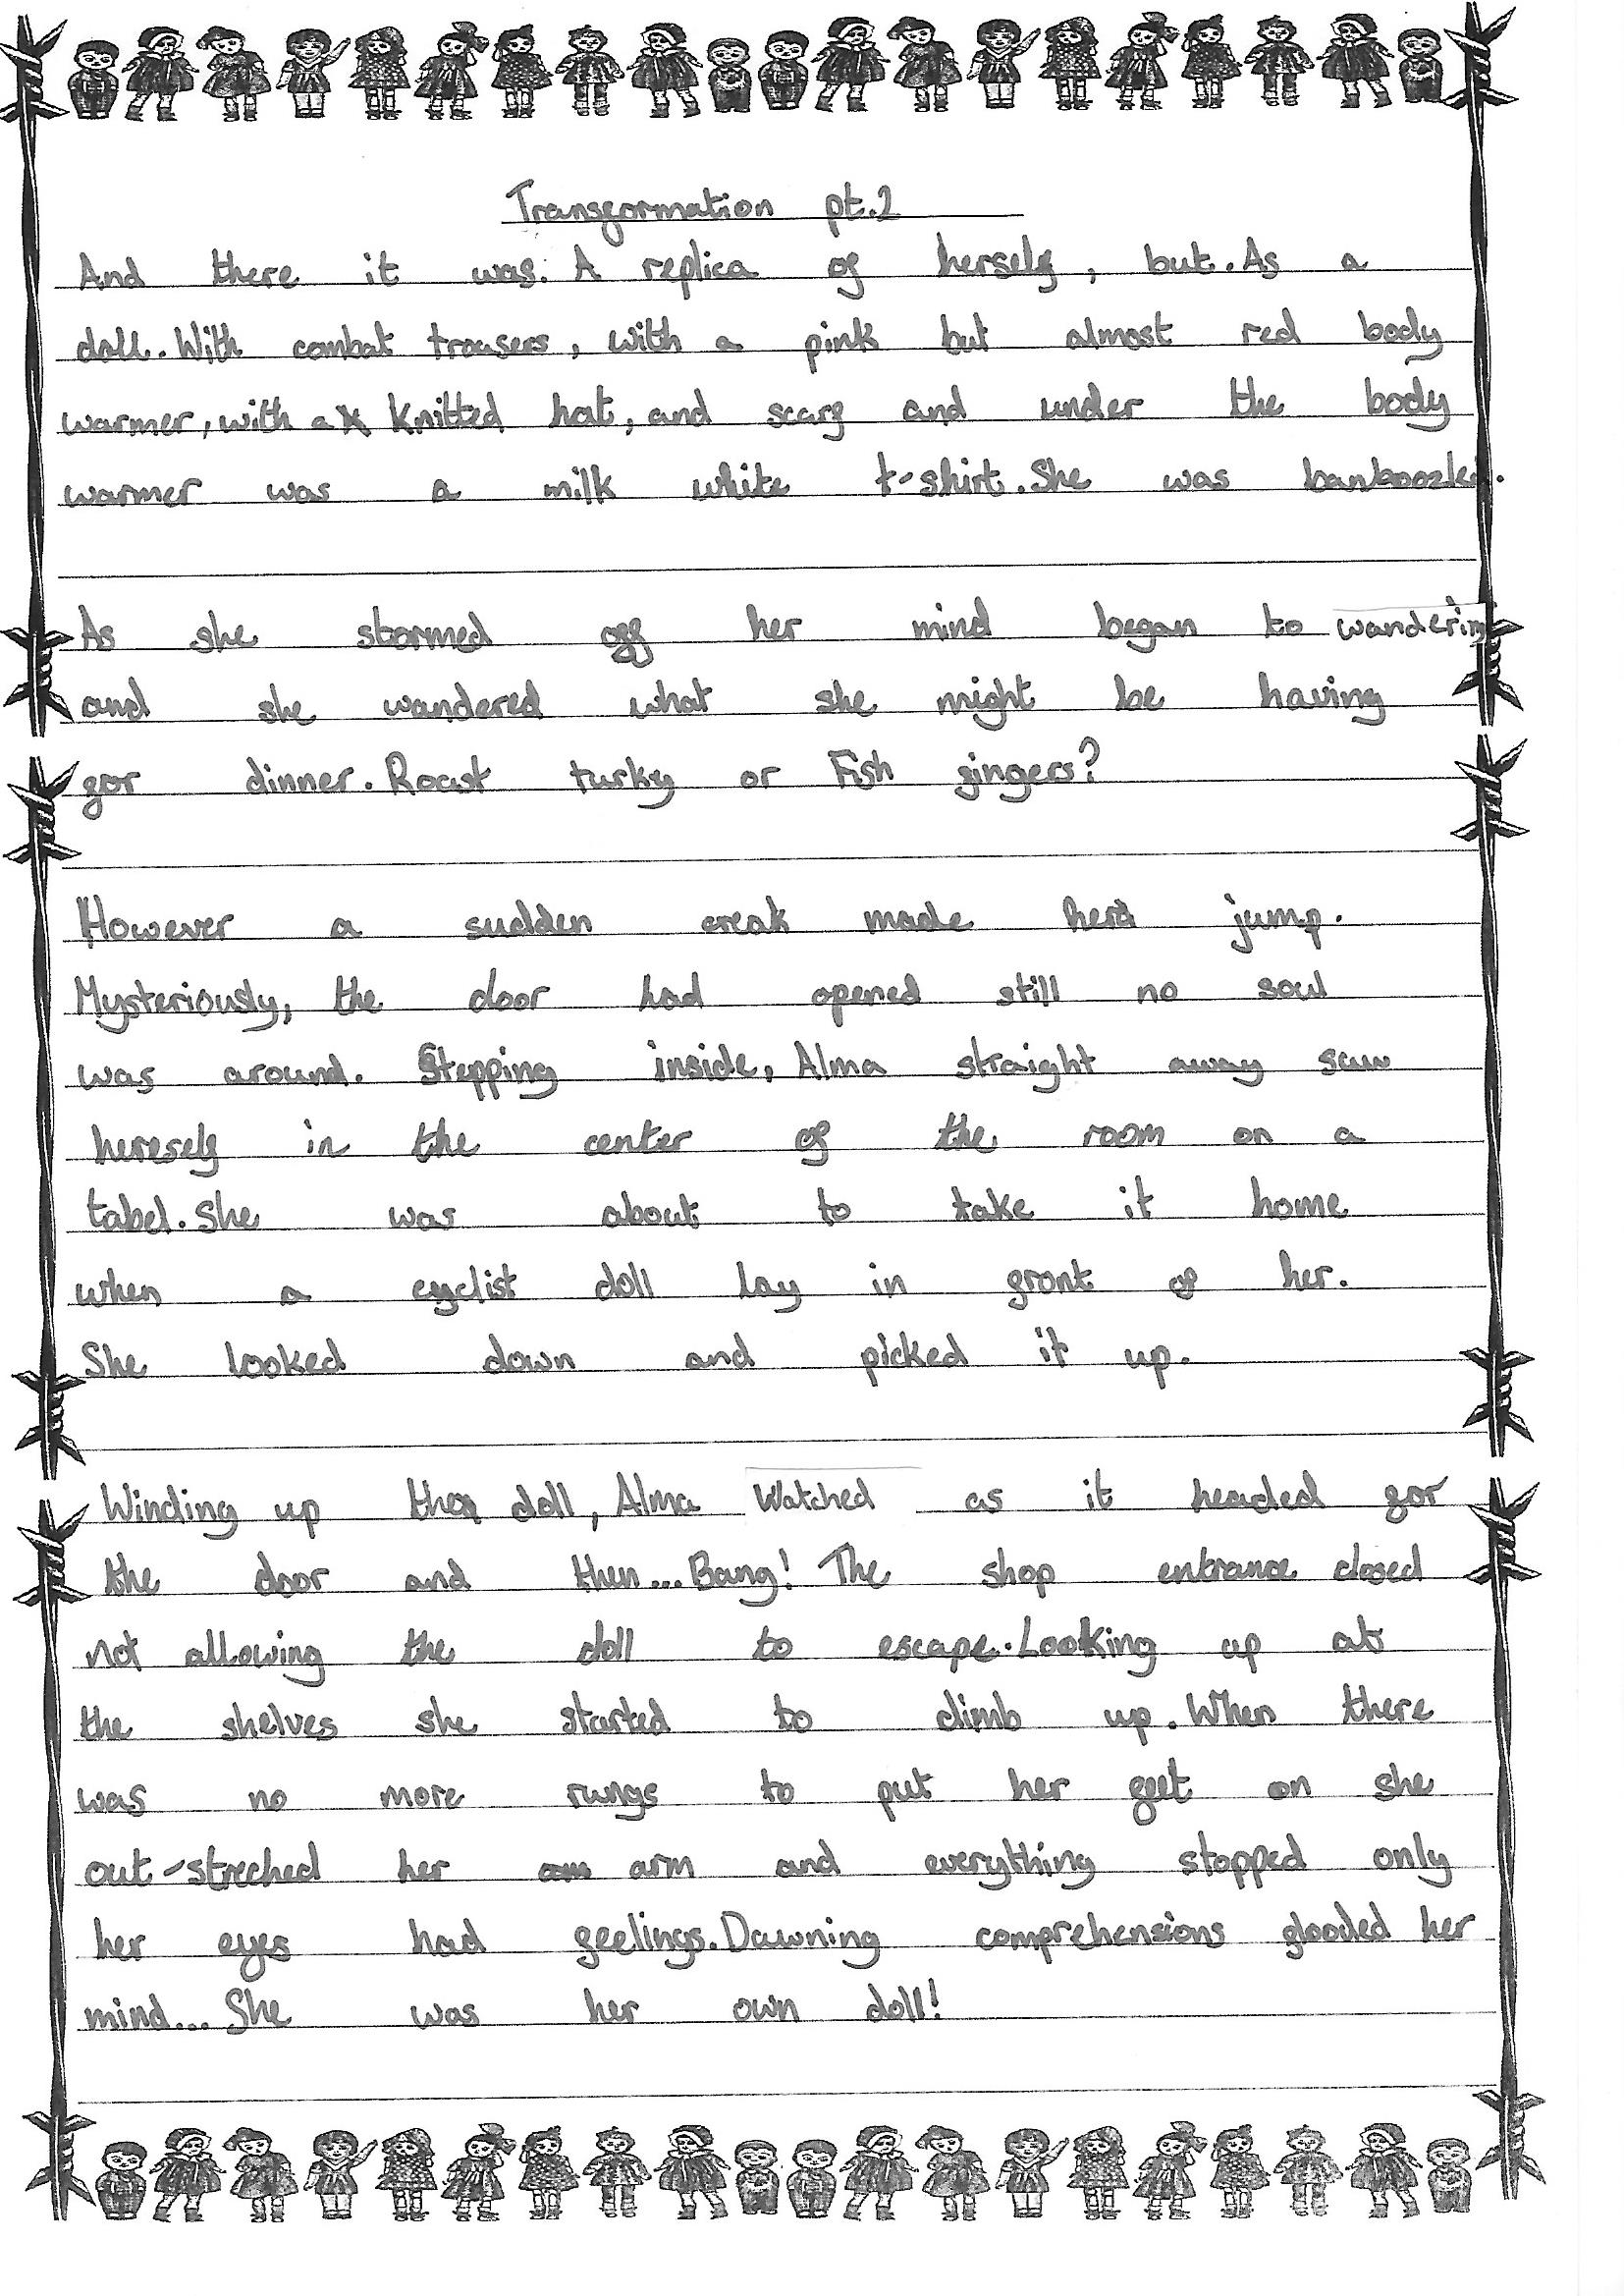 Transformation pt.2
And there it was. A replica of herself, but. As a
doll. With combat trousers, with a pink but almost red body
warmer, with a knitted hat, and scarf and under the body
warmer was a milk white t-shirt. She was bamboozled.
As she stormed off her mind began to wandering
and she wandered what she might be having
for dinner. Roast turky or Fish fingers?
However a sudden creak made her jump.
Mysteriously, the door had opened still no soul
was around. Stepping inside, Alma straight away saw
hereself in the center of the room on a
tabel. She was about to take it home
when a cyclist doll lay in front of her.
She looked down and picked it up.
Winding up the doll, Alma Watched as it headed for
the door and then... Bang! The shop entrance closed
not allowing the doll to escape. Looking up at
the shelves she started to climb up. When there
was no more rungs to put her feet on she
out-streched her arm and everything stopped only
her eyes had feelings. Dawning comprehensions flooded her
mind... She was her own doll!